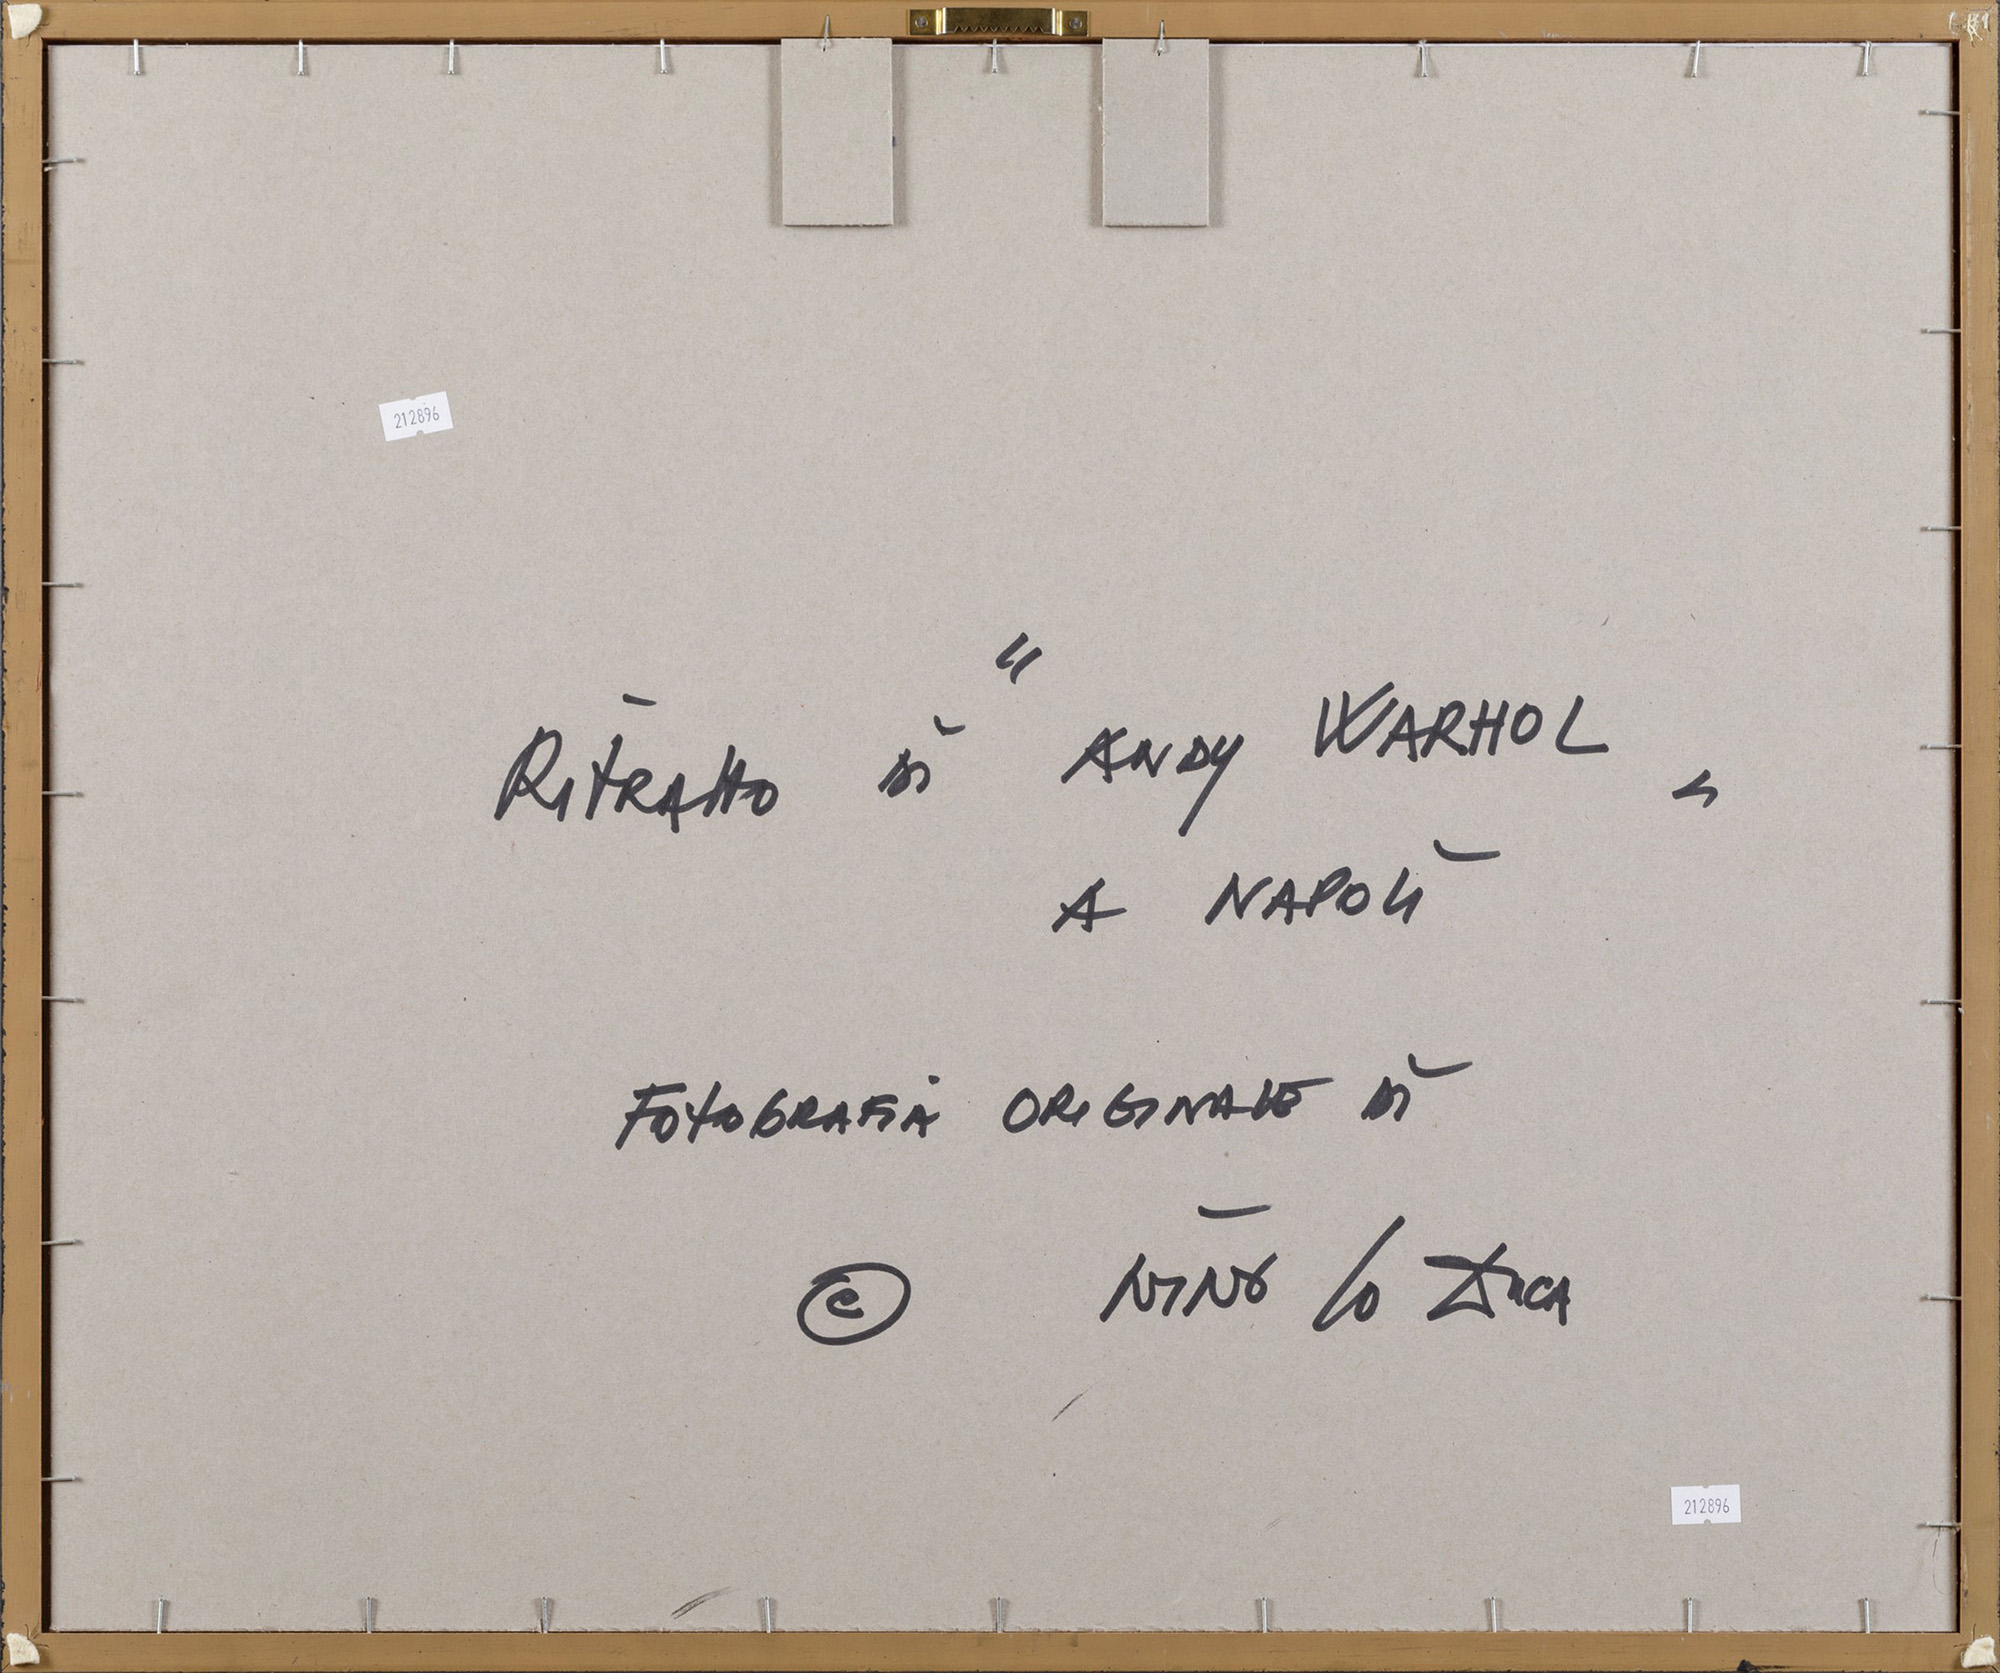 212896
Ritratto di " ANDY WARHOL "
A NAPOLI
FOTOGRAFIA ORIGINALE di
© NINO lo DUCA
212896